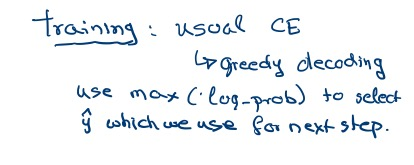 training : usual CE
↳ greedy decoding
use max (log_prob) to select
ŷ which we use for next step.